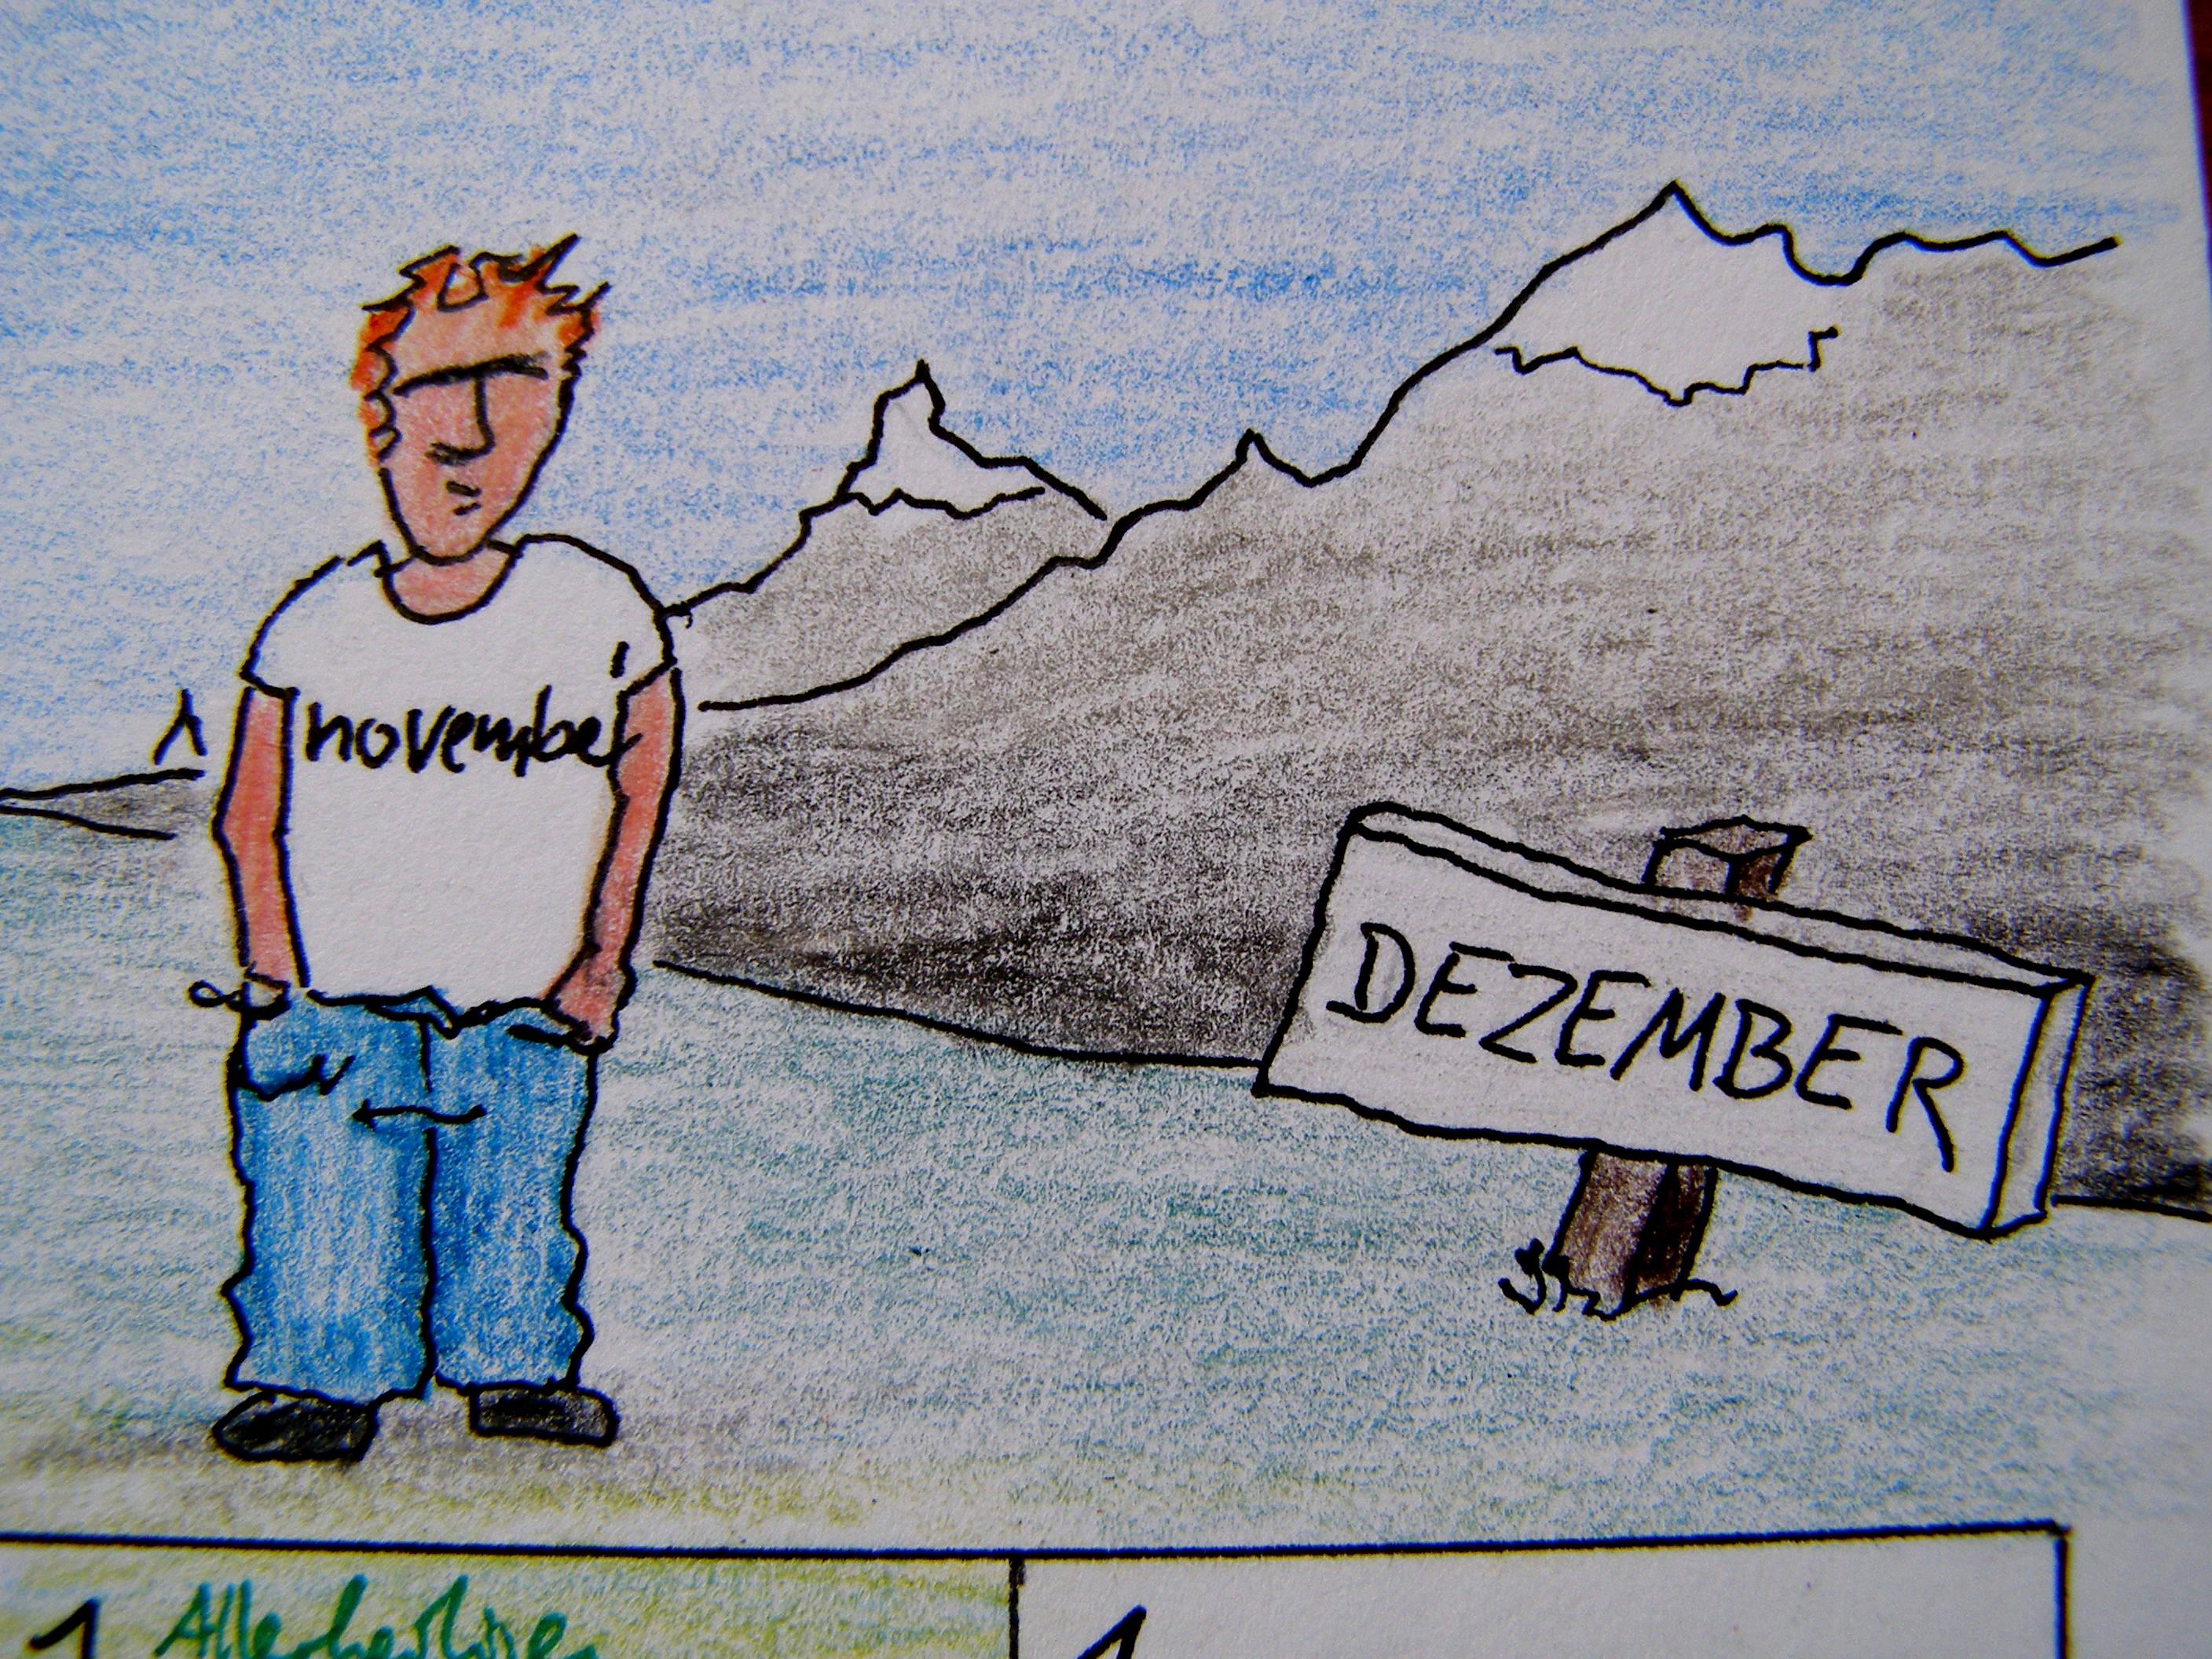 november
DEZEMBER
1 Allerheiligen
1